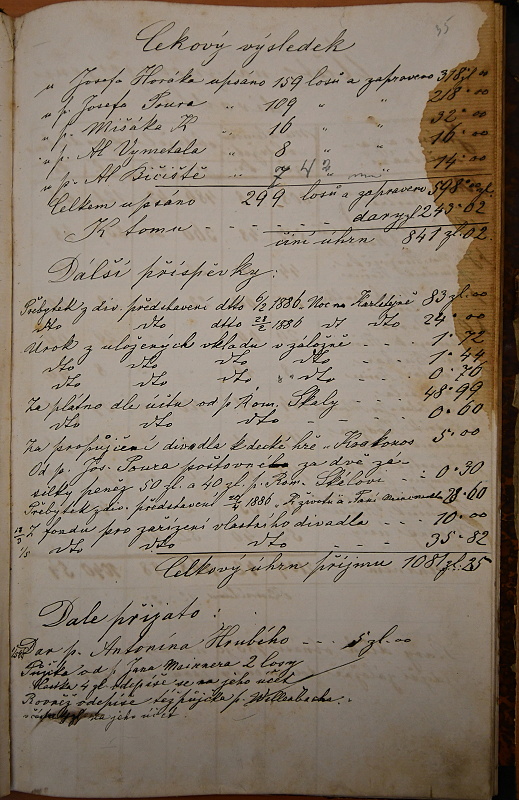 35
Cekový výsledek
u Josefa Horáka upsáno 159 losů a zapraveno 318 zl
u p. Josefa Poura " 109 " " 218·00
u p. Mišáka K " 16 " " 32·00
u p. Al Vymetala " 8 " " 16·00
u p. Al Bičiště " 7 " " 14·00
Celkem upsáno 299 losů a zapraveno 598·00 zl.
K tomu - - - - dary zl 243·02
činí úhrn 841 zl. 02.
Dálší příspěvky:
Přebytek z div. představení dtto 6/12 1886 „Noc na Karlštýně 83 zl. 00
dto dto dtto 28/2 1886 dt dto 24·00
Urok z uložených vkladu v záložně - - - 1·72
dto dto dto dto - - - 1·44
dto dto dto dto - - - 0·76
Za plátno dle účtu od p Rom. Škály - - - 48·99
dto dto dto dto - - - 0·60
Za propůjčení divadla k decké hře „Krakonos 5·00
Od p. Jos. Poura poštovného za dvě zá-
silky peněz 50 zl. a 40 zl. p. Rom. Škálovi - - 0·30
Přebytek z div. představení 26/4 1886 28·60
Z fondu pro zařízení vlastního divadla - - - 10·00
1/5 dto dto dto dto - - - 35·82
Celkový úhrn příjmu 1081 zl. 25
Dale přijato:
Dar p. Antonína Hrubého - - - 5 zl. 00
Půjčka od p Jana Meinnera 2 losy
4 zl. odepíše se na jeho účet
Rovněž odepíše též půjčka p. Willenbacha
na jeho účet